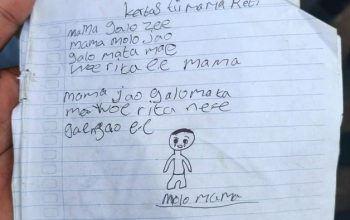 kertas tii mama Reti
mama galo zee
mama molo jao
galo mata mae
woe rita ee mama
mama jao galo mata
mae woe rita nese
ee
molo mama